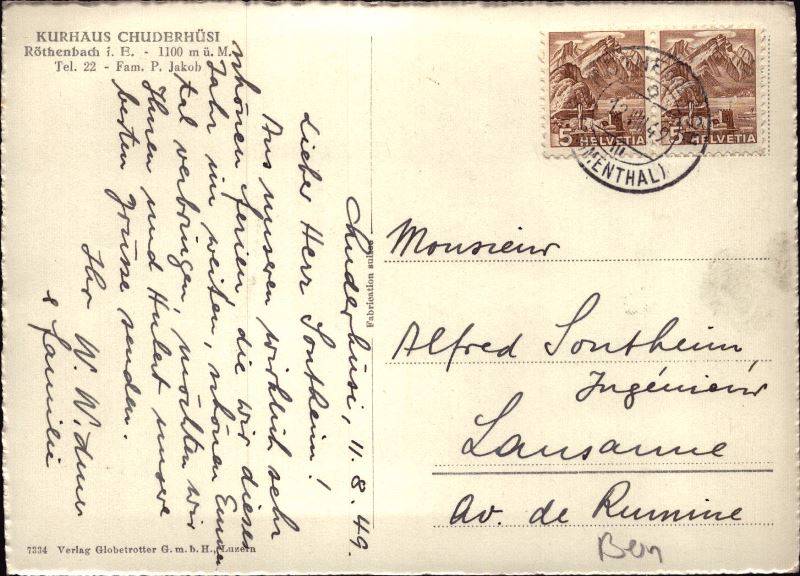 KURHAUS CHUDERHÜSI
Röthenbach i. E. - 1100 m ü. M.
Tel. 22 - Fam. P. Jakob
Chuderhüsi, 11. 8. 49.
Lieber Herr Sontheim!
Aus unseren wirklich sehr
schönen Ferien, die wir dieses
Jahr im weiten, schönen Emmen
tal verbringen, möchten wir
Ihnen und Hubert unsere
besten Grüsse senden.
Ihr W.
& Familie
Fabrication suisse
5 HELVETIA
5 HELVETIA
(EMMENTHAL)
Monsieur
Alfred Sontheim
Ingénieur
Lausanne
Av. de Rumine
Bern
7334 Verlag Globetrotter G. m. b. H., Luzern